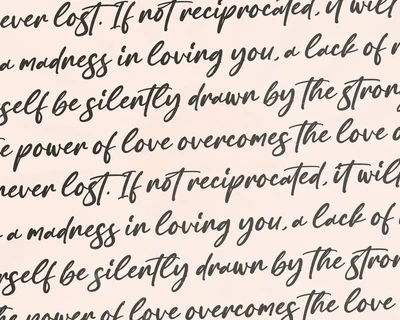 ever lost. If not reciprocated, it will
a madness in loving you, a lack of r
self be silently drawn by the strong
e power of love overcomes the love o
never lost. If not reciprocated, it will
a madness in loving you, a lack of
rself be silently drawn by the stron
he power of love overcomes the love